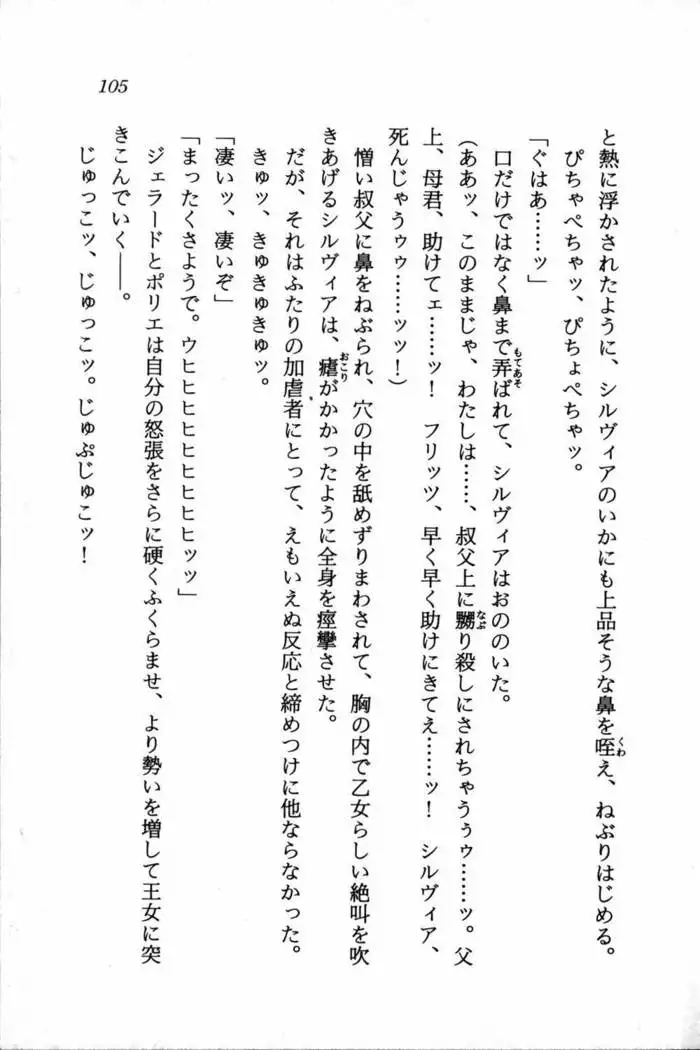 105
と熱に浮かされたように、シルヴィアのいかにも上品そうな鼻を咥え、ねぶりはじめる。
ぴちゃぺちゃッ、ぴちょぺちゃッ。
「ぐはあ……ッ」
口だけではなく鼻まで弄ばれて、シルヴィアはおののいた。
(ああッ、このままじゃ、わたしは……、叔父上に嬲り殺しにされちゃうぅゥ……ッ。父
上、母君、助けてェ……ッ！　フリッツ、早く早く助けにきてえ……ッ！　シルヴィア、
死んじゃうゥゥ……ッッ！)
憎い叔父に鼻をねぶられ、穴の中を舐めずりまわされて、胸の内で乙女らしい絶叫を吹
きあげるシルヴィアは、瘧がかかったように全身を痙攣させた。
だが、それはふたりの加虐者にとって、えもいえぬ反応と締めつけに他ならなかった。
きゅッ、きゅきゅきゅッ。
「凄いッ、凄いぞ」
「まったくさようで。ウヒヒヒヒヒヒヒヒッッ」
ジェラードとポリエは自分の怒張をさらに硬くふくらませ、より勢いを増して王女に突
きこんでいく――。
じゅっこッ、じゅっこッ。じゅぷじゅこッ！